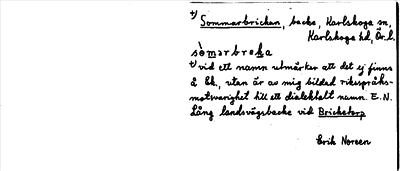 +) Sommarbricken, backe, Karlskoga sn,
Karlskoga hd, Ör. l.
sòmarbreka
+) vid ett namn utmärker att det ej finns
å Ek., utan är av mig bildad riksspråks-
motsvarighet till ett dialektalt namn. E. N.
Lång landsvägsbacke vid Bricketorp
Erik Noreen